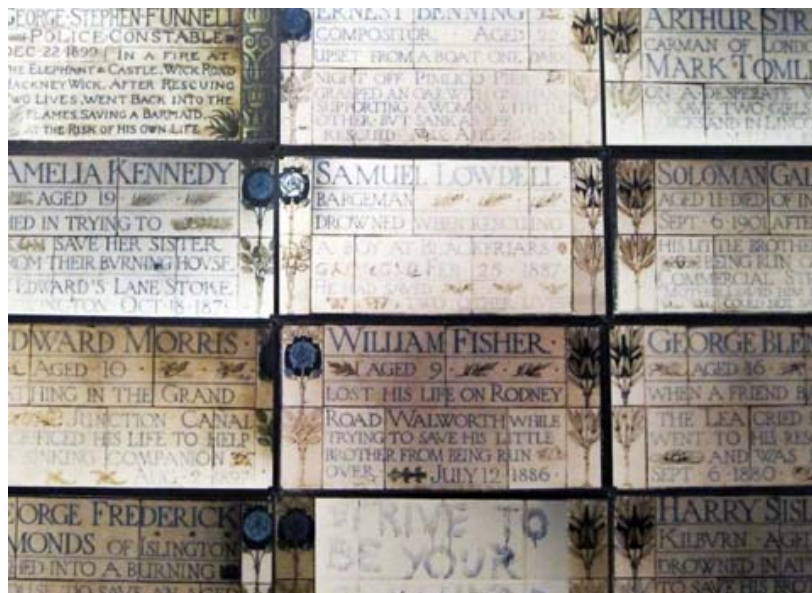 GEORGE·STEPHEN·FUNNELL
POLICE·CONSTABLE
DEC·22·1899· IN A FIRE AT
THE ELEPHANT & CASTLE, WICK ROAD
HACKNEY WICK. AFTER RESCUING
TWO LIVES, WENT BACK INTO THE
FLAMES, SAVING A BARMAID,
AT THE RISK OF HIS OWN LIFE
ERNEST BENNING
COMPOSITOR AGED 22
UPSET FROM A BOAT ONE DARK
NIGHT OFF PIMLICO
GRASPED AN OAR WITH ONE HAND
SUPPORTING A WOMAN WITH THE
OTHER BVT SANK AS
RESCUED AUG
ARTHUR
CARMAN OF
MARK
ON A DESPERATE
TO SAVE TWO
AND IN
AMELIA KENNEDY
AGED 19
IED IN TRYING TO
SAVE HER SISTER
FROM THEIR BVRNING HOVSE
EDWARD'S LANE STOKE
OCT·18·187
SAMUEL LOWDELL
BARGEMAN
DROWNED WHEN RESCUING
A BOY AT BLACKFRIARS
FEB 25 1887
HE HAD SAVED
TWO OTHER LIVES
SOLOMAN
AGED 11 DIED OF
SEPT·6·190
HIS LITTLE BROTHE
BEING RUN
COMMERCIAL
COULD NOT
EDWARD MORRIS·
AGED 10
THING IN THE GRAND
JUNCTION CANAL
FICED HIS LIFE TO HELP
SINKING COMPANION
AUG·2·1897
WILLIAM FISHER·
AGED 9
LOST HIS LIFE ON RODNEY
ROAD WALWORTH WHILE
TRYING TO SAVE HIS LITTLE
BROTHER FROM BEING RUN
OVER· JULY 12·1886·
GEORGE BLEN
AGED 16
WHEN A FRIEND
THE LEA CRIED
WENT TO HIS RE
AND WAS
SEPT·6·1880
GEORGE FREDERICK
MONDS OF ISLINGTON
HED INTO A BURNING
TO SAVE AN AGED
STRIVE TO
BE YOUR
HARRY SIS
KILBVRN·AGE
DROWNED IN AT
TO SAVE HIS BRO